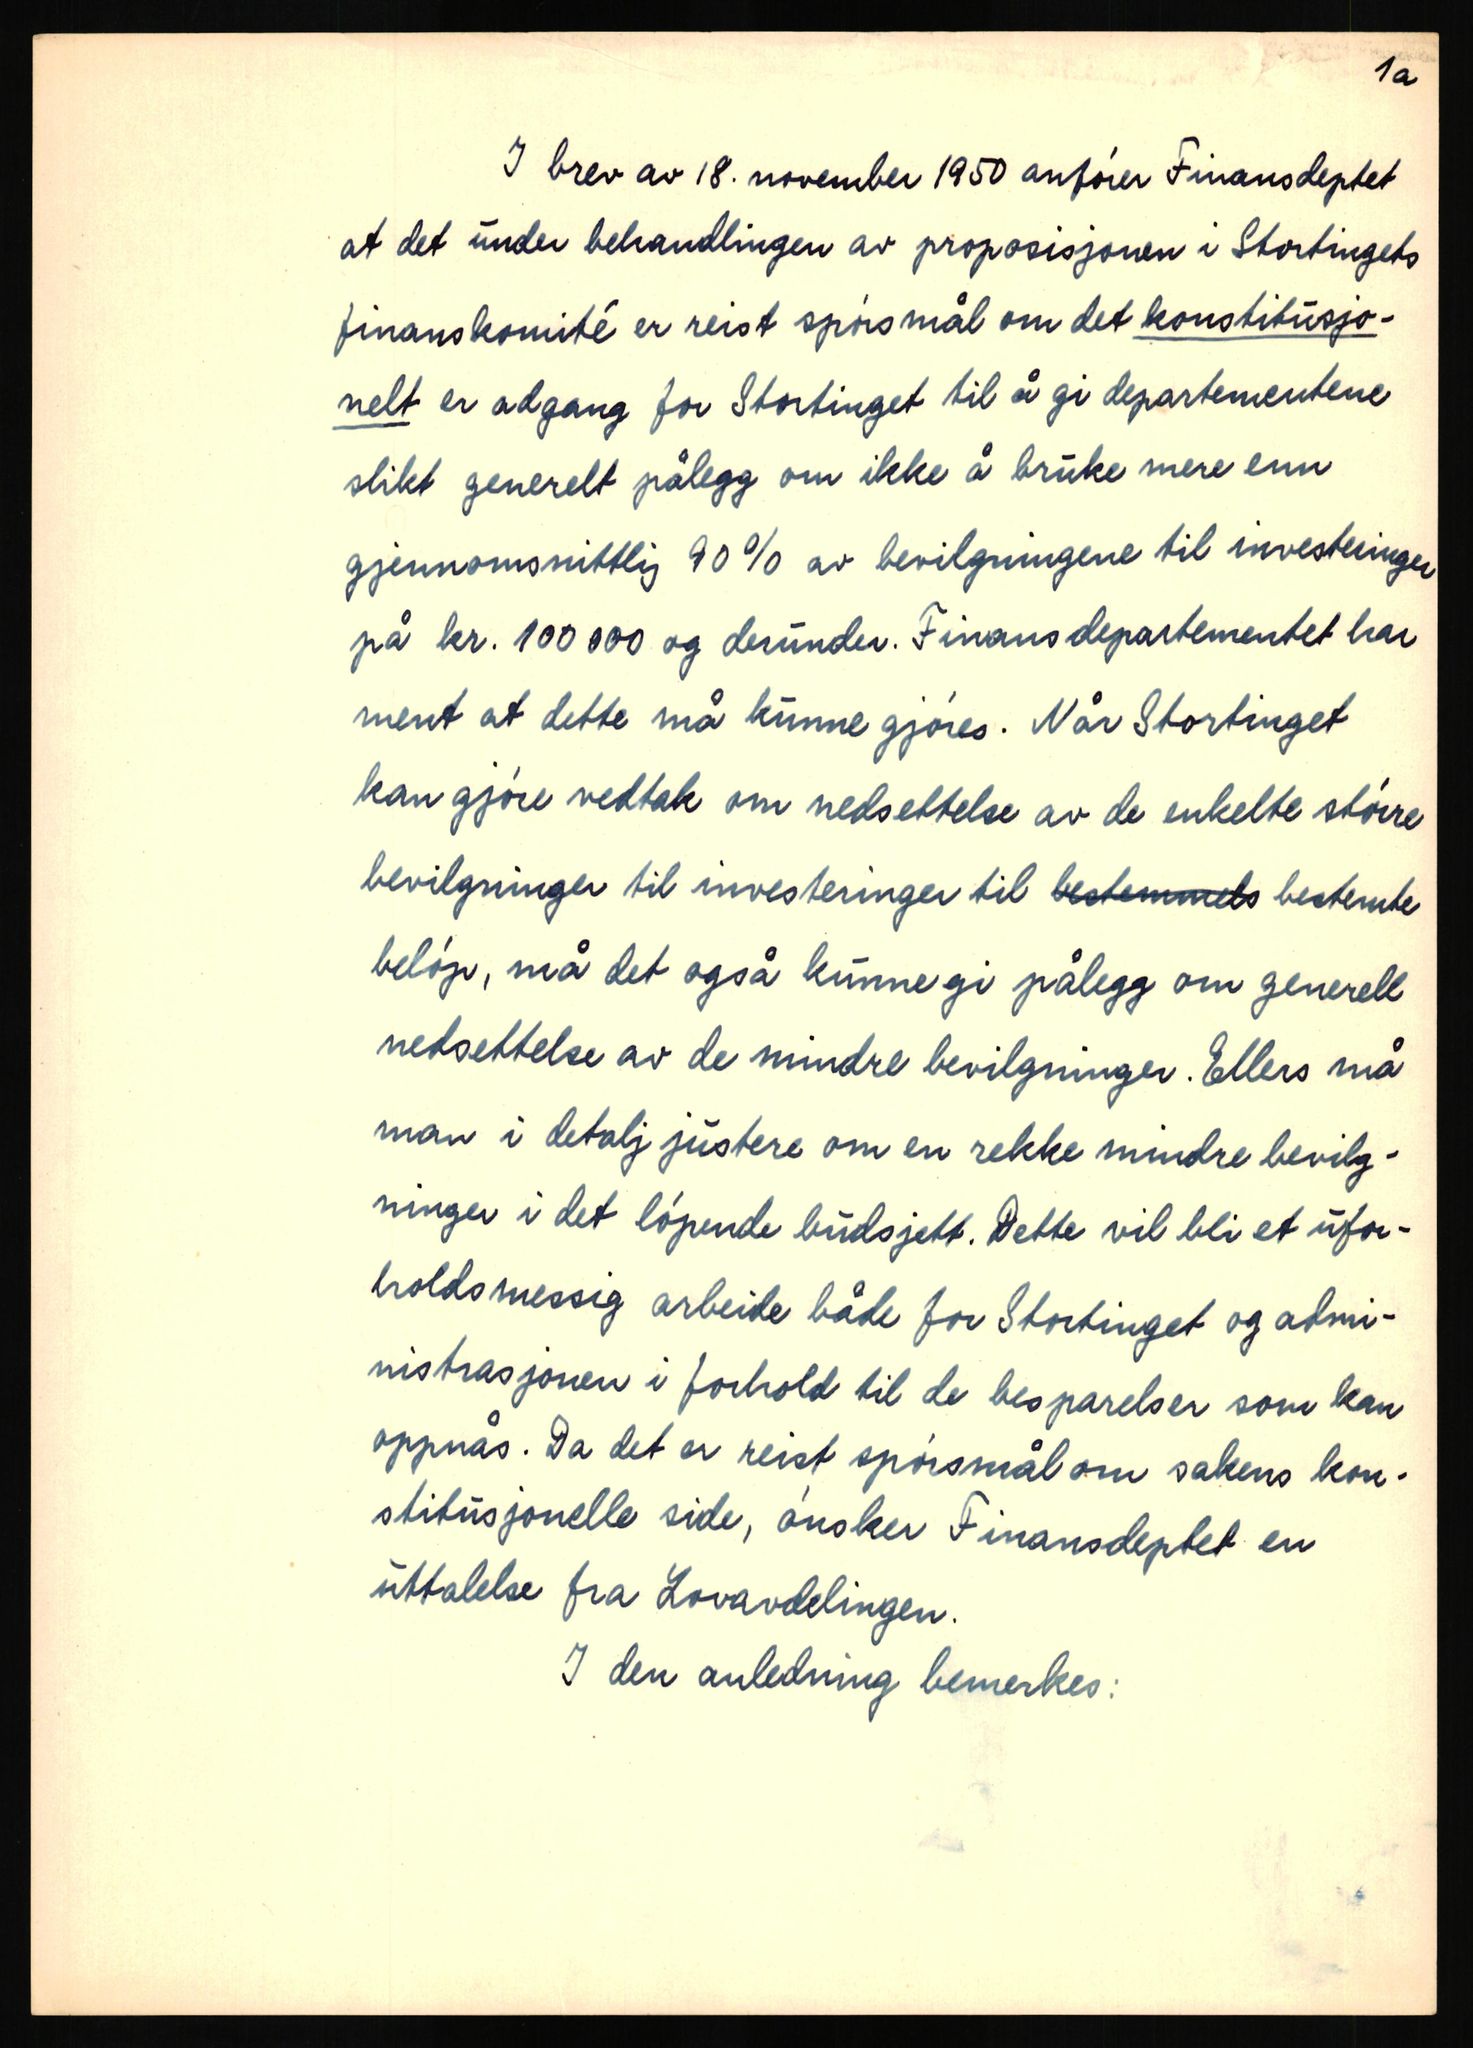 1a
I brev av 18. november 1950 anfórer Finansdeptet
at det under behandlingen av proposisjonen i Stortingets
finanskomité er reist spórsmål om det konstitusjo-
nelt er adgang for Stortinget til å gi departementene
slikt generelt pålegg om ikke å bruke mere enn
gjennomsnittlig 90% av bevilgningene til investeringer
på kr. 100 000 og derunder. Finansdepartementet har
ment at dette må kunne gjóres. Når Stortinget
kan gjóre vedtak om nedsettelse av de enkelte stórre
bevilgninger til investeringer til bestemmels bestemte
belóp, må det også kunne gi pålegg om generell
nedsettelse av de mindre bevilgninger. Ellers må
man i detalj justere om en rekke mindre bevilg-
ninger i det lópende budsjett. Dette vil bli et ufor-
holdsmessig arbeide både for Stortinget og admi-
nistrasjonen i forhold til de besparelser som kan
oppnås. Da det er reist spórsmål om sakens kon-
stitusjonelle side, ónsker Finansdeptet en
uttalelse fra Lovavdelingen.
I den anledning bemerkes: